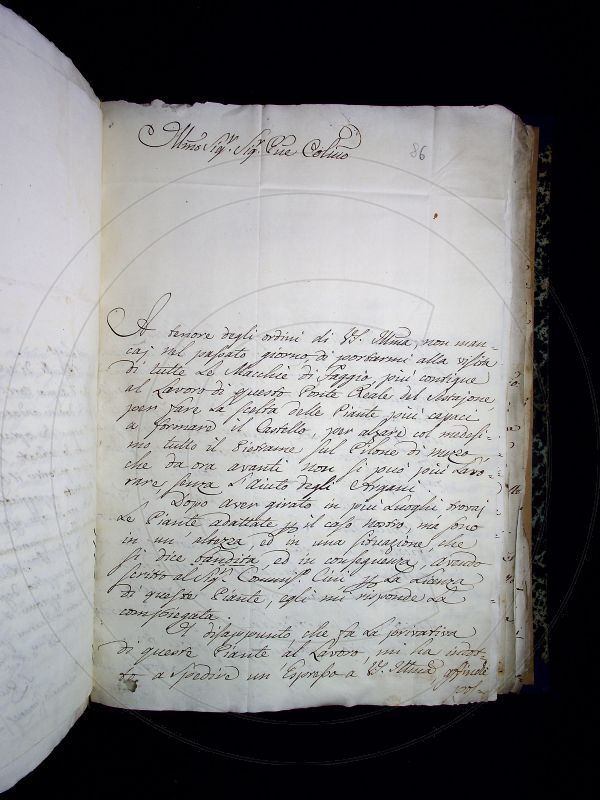 Illmo Sigr. Sigr. Pne Colmo
86
A tenore degli ordini di VS. Illma, non man-
caj nel passato giorno di portarmi alla visita
di tutte Le Macchie di Faggio più contigue
al Lavoro di questo Ponte Reale del Mattajone,
per fare La scelta delle Piante più capaci
a formare il Castello, per alzare col medesi-
mo tutto il Pietrame sul Pilone di mezzo
che da ora avanti non si può più Lavo-
rare senza L'aiuto degli Argani.
Dopo aver girato in più Luoghi trovaj
Le Piante adattate p il caso nostro, ma sono
in un'altezza, ed in una situazione che
si dice bandita, ed in conseguenza, avendo
scritto al Sigr. Commisso. Cini p La Licenza
di queste Piante, egli mi risponde La
compiegata.
Il disappunto, che fa La privativa
di queste Piante al Lavoro, mi ha indot-
to a spedire un'Espresso a VS. Illma affinchè